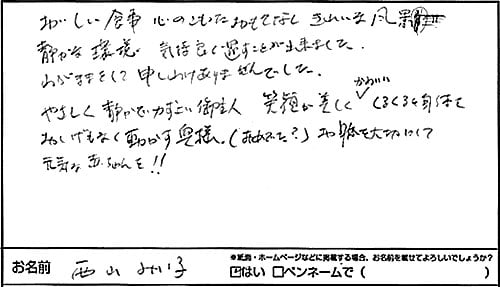 おいしい食事 心のこもったおもてなし きれいな風景
静かな環境 気持良く過すことが出来ました。
わがままをして申しわけありませんでした。
かわいい
やさしく静かで力すごい御主人 笑顔が美しく くるくると身体を
おしげもなく動かす奥様。(おめでた?) お身体を大切にして
元気な赤ちゃんを!!
※紙面・ホームページなどに掲載する場合、お名前を載せてよろしいでしょうか?
お名前 西山 みい子 ☑はい □ペンネームで ( )